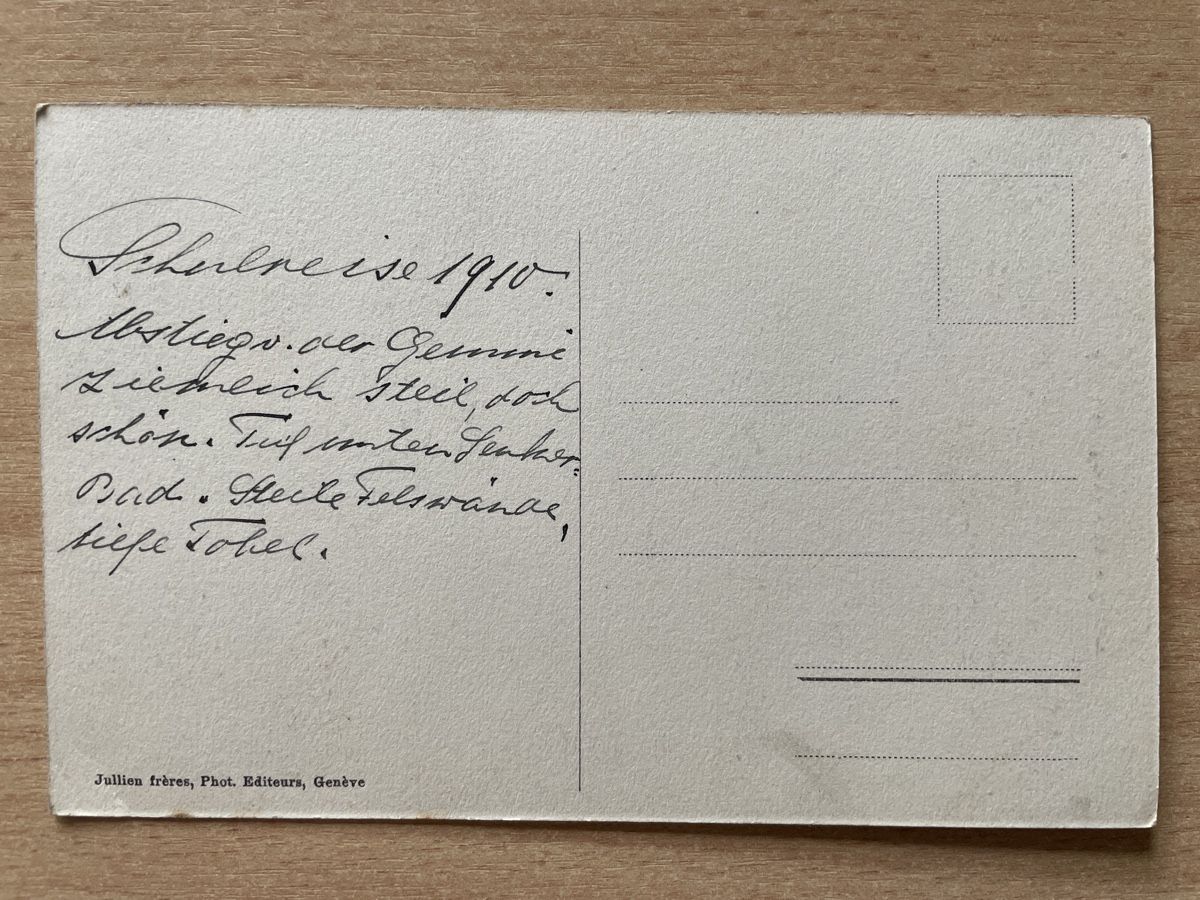 Schulreise 1910.
Abstieg v. der Gemmi
ziemlich steil, doch
schön. Tief unten Leuker-
Bad. Steile Felswände,
tiefe Tobel.
Jullien frères, Phot. Editeurs, Genève